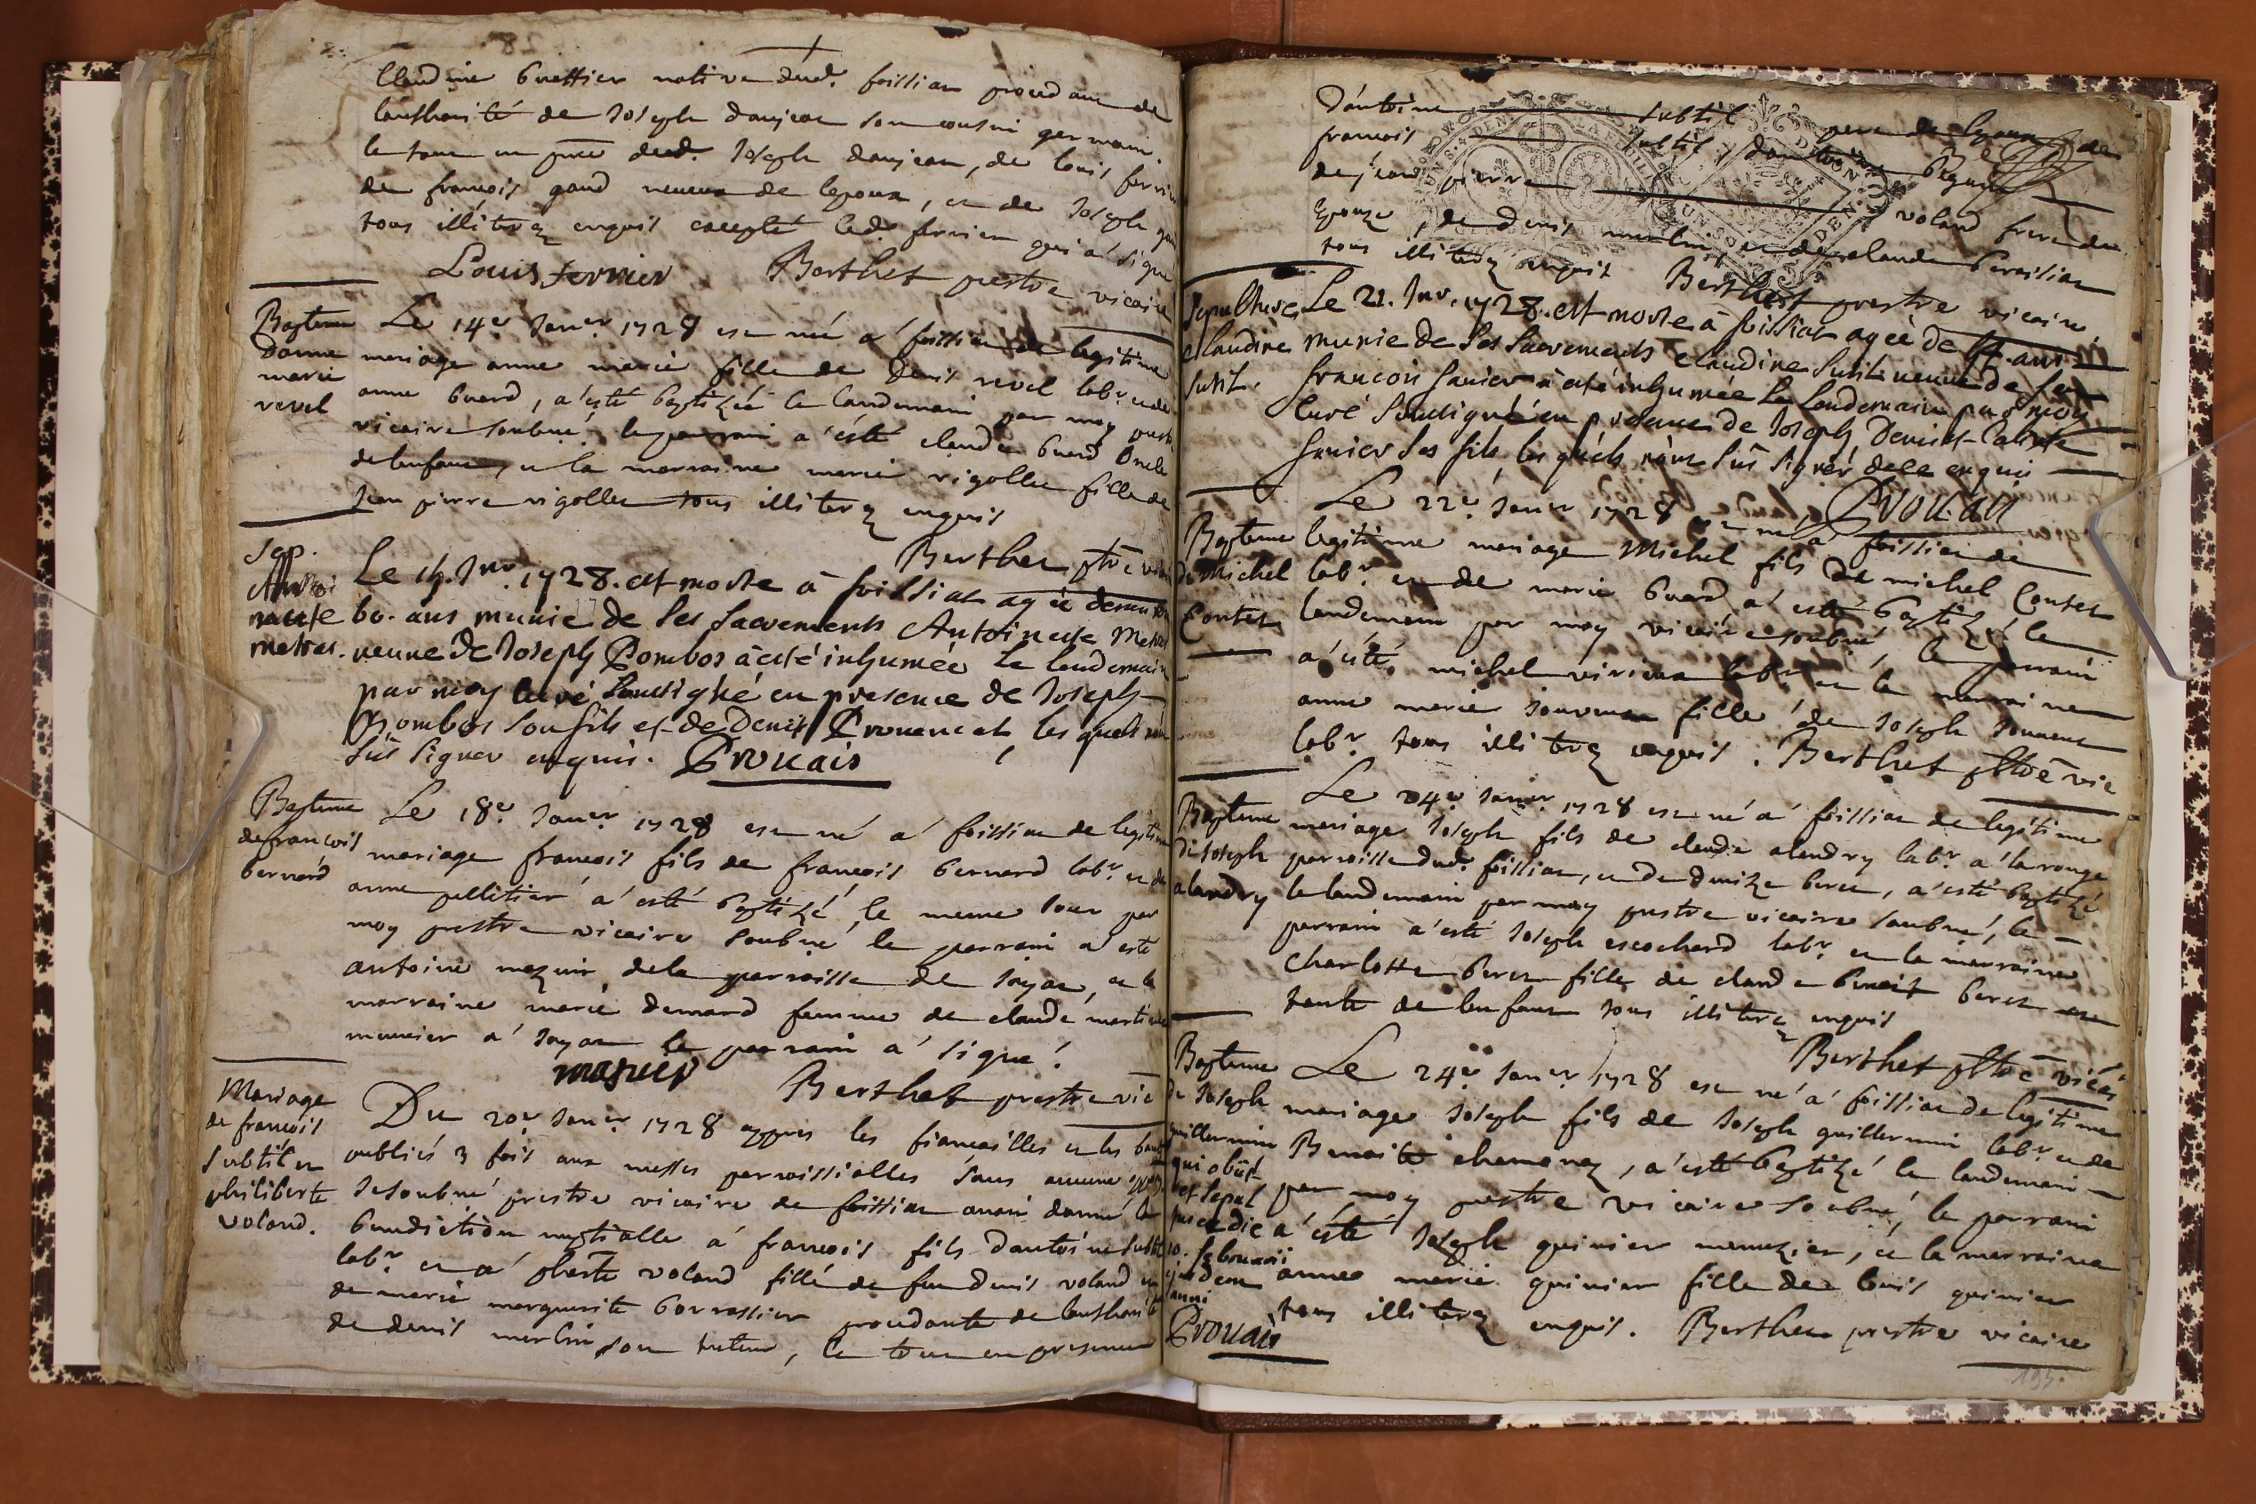 Claudine Buattier native dud. foissiat procedant de
lauthorité de Joseph danjean son cousin germain.
le tout en pnce dud. Joseph danjean, de louis ferrier
de francois gaud neveux de lepoux, et de Joseph
tous illiterez enquis excepté led. ferrier qui a signé
Louis ferrier Berthet prestre vicaire
Bapteme
danne
marie
revel
Le 14e Janer 1728 est né a foissiat de legitime
mariage anne marie fille de denis revel labr. et de
anne buard, a esté baptizée le landemain par moy prestre
vicaire soubné. le parrain a esté claude buard oncle
de lenfant, et la marraine marie rigollet fille de
Jean pierre rigollet tous illiterez enquis
Berthet ptre vic
Sep.
Antoi
nette
metras.
Le 15. Jnr. 1728. est morte à foissiat agée denviron
60. ans munie de ses sacrements Antoinette Metras
veuve de Joseph Pombos a été inhumée le lendemain
par moy curé soussigné en presence de Joseph
Pombos son fils et de Denis Provencel, les quels n'ont
sûs signer enquis. Provais
Bapteme
de francois
bernard
Le 18e. Janer. 1728 est né a foissiat de legitime
mariage francois fils de francois bernard labr. et de
anne pelletier a esté baptizé le meme Jour par
moy prestre vicaire soubné le parrain a esté
antoine mazuir dela parroisse de Jayat, et la
marraine marie demard femme de claude martin
munier a Jayat le parrain a signé.
mazuir Berthet prestre vic
Mariage
de francois
subtil et
philiberte
voland.
Du 20e Janer. 1728 appres les fiancailles et les bans
publiés 3 fois aux messes parroissialles sans aucune oppos.
Je soubné prestre vicaire de foissiat avoir donné la
benediction nuptialle a francois fils dantoine subtil
labr. et a pherte voland fille de feu denis voland et
de marie marguerite borrassier procedante de lauthorité
de denis merlin son tuteur, le tout en presence
dantoine subtil pere de lepoux de
francois subtil, dantoine
de Jean pierre voland frere de
lepouze, de denis merlin et de claude
tous illiterez enquis Berthet prestre vicaire
Sepulture
claudine
Sutil.
Le 21. Jnr. 1728. est morte à foissiat agée de ans
munie de ses sacrements Claudine Sutil veuve de feu
francois Janier a été inhumée le lendemain par moy
curé soussigné en presence de Joseph Denis et
Janier ses fils, les quels n'ont sûs signer de ce enquis
Provais
Bapteme
de Michel
Contet
Le 22e. Janer 1728 est né a foissiat de
legitime mariage Michel fils de michel Contet
labr. et de marie buard, a esté baptizé le
landemain par moy vicaire soubné, le parrain
a esté michel vivien labr. et la marraine
anne marie Jouvent fille de Joseph Jouvent
labr. tous illiterez enquis. Berthet ptre vic
Bapteme
de Joseph
alandry
Le 24e Janer. 1728 est né a foissiat de legitime
mariage Joseph fils de claude alandry labr. a la rouge
parroisse dud. foissiat, et de denize beret, a esté baptizé
le landemain par moy prestre vicaire soubné, le
parrain a esté Joseph escochard labr. et la marraine
charlotte beret fille de claude benoit beret
tante de lenfant tous illiterez enquis
Berthet ptre vicre
Bapteme
de Joseph
guillermin
qui obiit
et sepul
pridie
10. februarii
ejusdem
anni
Provais
Le 24e. Janer. 1728 est né a foissiat de legitime
mariage Joseph fils de Joseph guillermin labr. et de
Benoite chamerey, a esté baptizé le landemain
par moy prestre vicaire soubné, le parrain
a esté Joseph guinier menuzier, et la marraine
anne marie guinier fille de louis guinier
tous illiterez enquis. Berthet prestre vicaire
195.